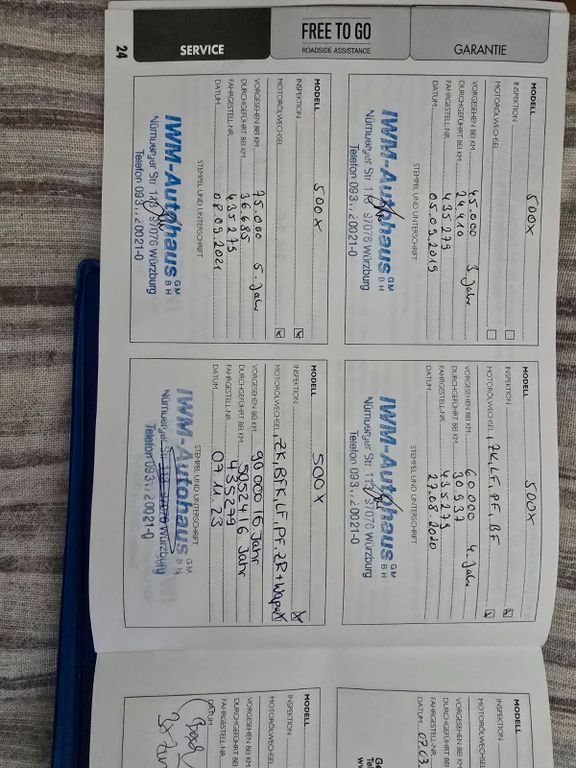 SERVICE
FREE TO GO
ROADSIDE ASSISTANCE
GARANTIE
24
MODELL 500X
INSPEKTION
MOTORÖLWECHSEL
VORGESEHEN BEI KM 45.000 3. Jahr
DURCHGEFÜHRT BEI KM 24.410
FAHRGESTELL-NR. 435279
DATUM 05.09.2019
STEMPEL UND UNTERSCHRIFT
IWM-Autohaus GMBH
Nürnberger Str. 97076 Würzburg
Telefon 20021-0
MODELL 500X
INSPEKTION
MOTORÖLWECHSEL, ZK, LF, PF, BF
VORGESEHEN BEI KM 60.000 4. Jahr
DURCHGEFÜHRT BEI KM 30.937
FAHRGESTELL-NR. 435279
DATUM 27.08.2020
STEMPEL UND UNTERSCHRIFT
IWM-Autohaus GMBH
Nürnberger Str. 97076 Würzburg
Telefon 20021-0
MODELL 500X
INSPEKTION
MOTORÖLWECHSEL
VORGESEHEN BEI KM 75.000 5. Jahr
DURCHGEFÜHRT BEI KM 36.685
FAHRGESTELL-NR. 435279
DATUM 08.09.2021
STEMPEL UND UNTERSCHRIFT
IWM-Autohaus GMBH
Nürnberger Str. 97076 Würzburg
Telefon 20021-0
MODELL 500X
INSPEKTION
MOTORÖLWECHSEL, ZK, BFK, LF, PF, ZR + Wapu
VORGESEHEN BEI KM 90000 / 6 Jahr
DURCHGEFÜHRT BEI KM 50524 / 6 Jahr
FAHRGESTELL-NR. 435279
DATUM 07.11.23
STEMPEL UND UNTERSCHRIFT
IWM-Autohaus GMBH
Nürnberger Str. 97076 Würzburg
Telefon 20021-0
MODELL
INSPEKTION
MOTORÖLWECHSEL
VORGESEHEN BEI KM
DURCHGEFÜHRT BEI
FAHRGESTELL-NR.
DATUM 07.03.
MODELL
INSPEKTION
MOTORÖLWECHSEL
VORGESEHEN BEI KM
DURCHGEFÜHRT BEI
FAHRGESTELL-NR.
DATUM